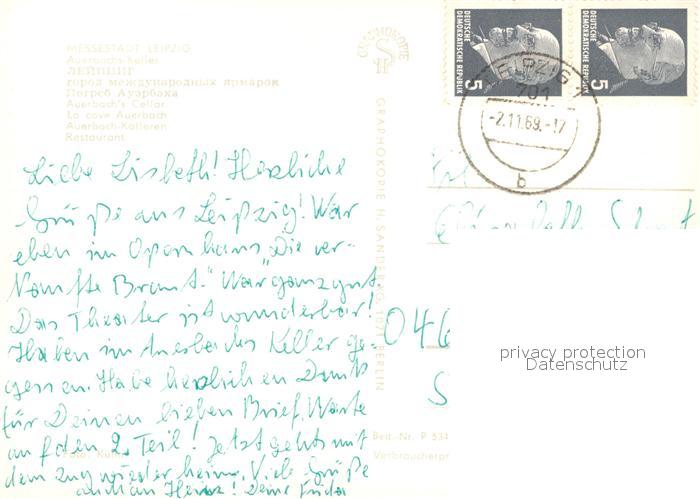 MESSESTADT LEIPZIG
Auerbachs-Keller
ЛЕЙПЦИГ
город международных ярмарок
Погреб Ауэрбаха
Auerbach's Cellar
La cave Auerbach
Auerbach-Källaren
Restaurant
GRAPHOKOPIE
GRAPHOKOPIE H. SANDER KG, 1071 BERLIN
DEUTSCHE DEMOKRATISCHE REPUBLIK 5
DEUTSCHE DEMOKRATISCHE REPUBLIK 5
LEIPZIG
701
-2.11.69.-17
b
Liebe Lisbeth! Herzliche
Grüße aus Leipzig! War
eben im Opernhaus „Die ver-
kaufte Braut." War ganz gut.
Das Theater ist wunderbar!
Haben im Auerbachs Keller ge-
gessen. Habe herzlichen Dank
für Deinen lieben Brief. Warte
auf den 2. Teil! Jetzt gehts mit
dem Zug wieder heim. Viele Grüße
auch an Heinz! Deine Frieda
046
S
Best.-Nr. P 534
Verbraucherpr
privacy protection
Datenschutz